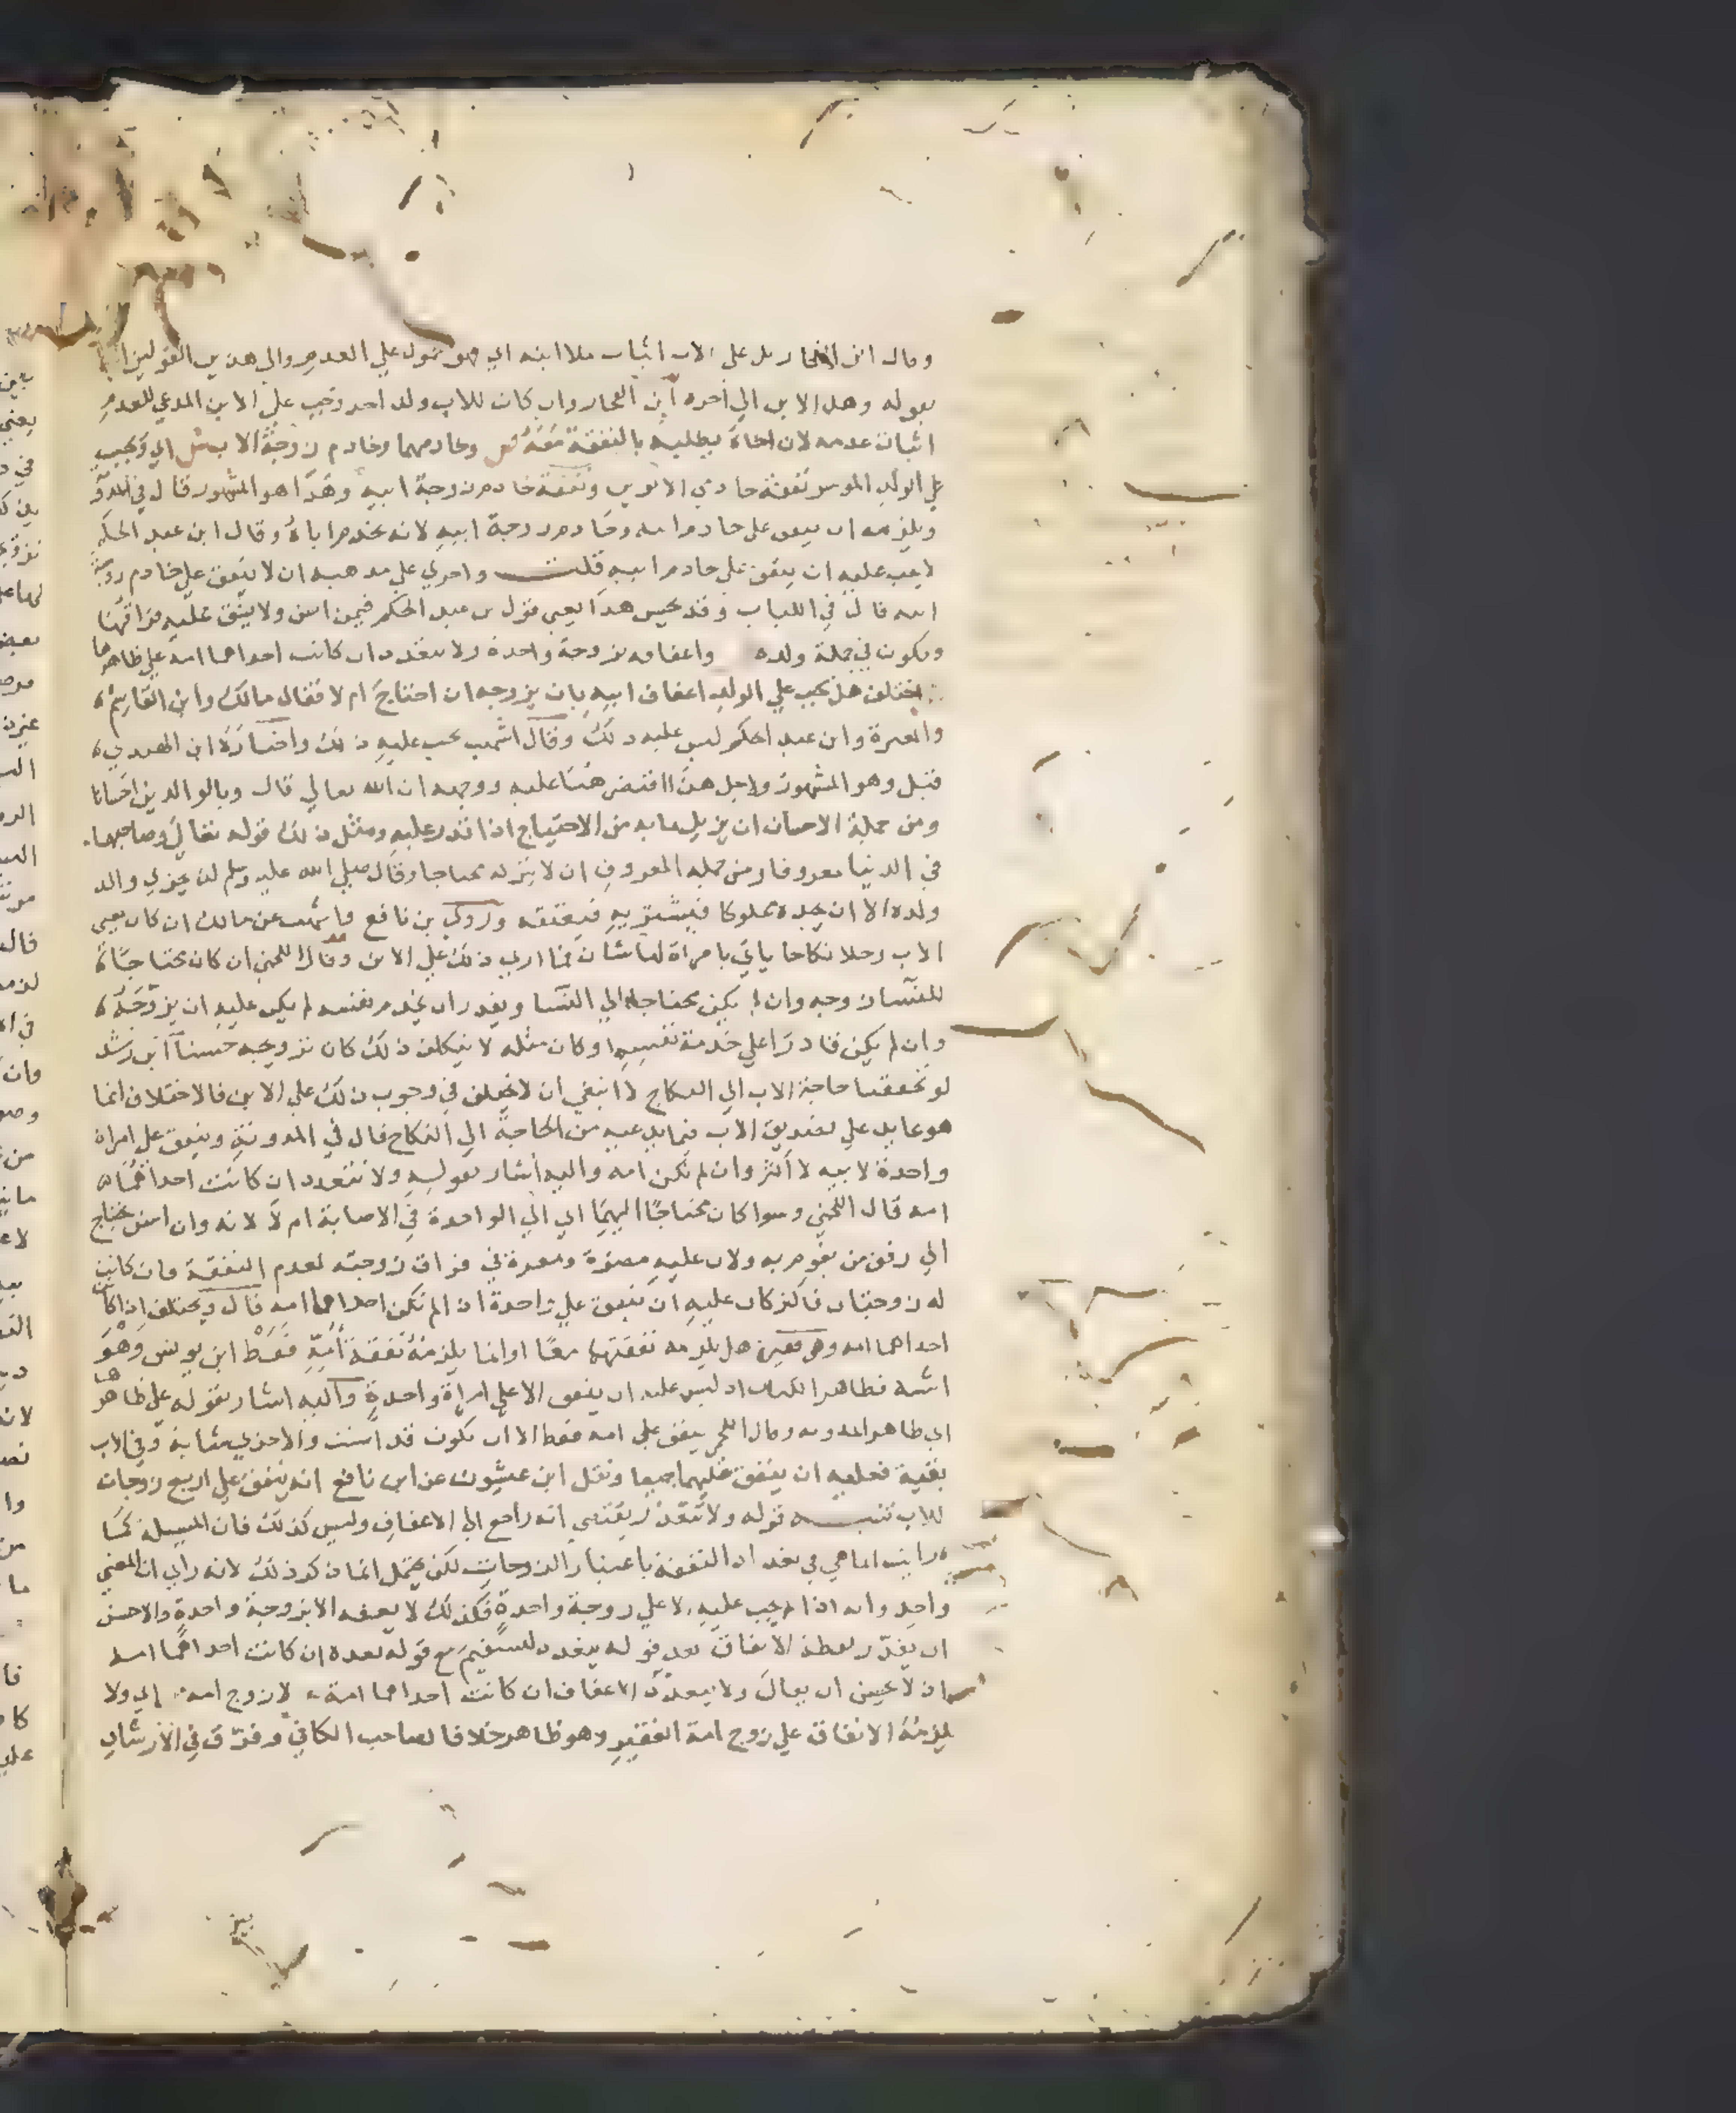 وقال ابن الفخار بل على الاب اثبات ملا ابنه اي هو محمول علي العدم والي هذين القولين اشار
بقوله وهل الابن الي اخره ابن الفخار وان كان للاب ولد اخر وجب علي الابن المدعي للعدم
اثبات عدمه لان اخاه يطلبه بالنفقة معه ص وخادمهما وخادم زوجة الاب ش اي ويجب
علي الولد الموسر نفقة خادمي الابوين ونفقة خادم زوجة ابيه وهذا هو المشهور قال في المدونة
ويلزمه ان ينفق علي خادم ابيه وخادم زوجة ابيه لانه يخدم اباه وقال ابن عبد الحكم
لا يجب عليه ان ينفق علي خادم ابيه قلت واحري علي مذهبه ان لا ينفق علي خادم زوجة
ابيه قال في اللباب وقد يحسن هذا يعني قول بن عبد الحكم فيمن اسن ولا يشق عليه فراقها
وتكون في جملة ولده واعفافه بزوجة واحدة ولا تتعدد ان كانت احداهما امه علي ظاهرها
اختلف هل يجب علي الولد اعفاف ابيه بان يزوجه ان احتاج ام لا فقال مالك وابن القاسم
والمغيرة وابن عبد الحكم ليس عليه ذلك وقال اشهب يجب عليه ذلك واختاره ابن الهندي
قيل وهو المشهور ولاجل هذا اقتصر هنا عليه ووجهه ان الله تعالي قال وبالوالدين احسانا
ومن جملة الاحسان ان يزيل ما به من الاحتياج اذا قدر عليه ومثل ذلك قوله تعالي وصاحبهما
في الدنيا معروفا ومن جملة المعروف ان لا يتركه محتاجا وقال صلي الله عليه وسلم لن يجزي والد
ولده الا ان يجده مملوكا فيشتريه فيعتقه وروي بن نافع واشهب عن مالك ان كان يعني
الاب رجلا نكاحا ياتي بامراة لها شان فما اري ذلك علي الابن وقال اللخمي ان كان محتاجا
للنسا زوجه وان لم يكن محتاجا الي النسا ويقدر ان يخدم نفسه لم يكن عليه ان يزوجه
وان لم يكن قادرا علي خدمة نفسه او كان مثله لا يتكلف ذلك كان تزويجه حسنا ابن رشد
لو تحققنا حاجة الاب الي النكاح لانبغي ان لا يختلف في وجوب ذلك علي الابن فالاختلاف انما
هو عايد علي تصديق الاب فيما يدعيه من الحاجة الي النكاح قال في المدونة وينفق علي امراة
واحدة لابيه لا اكثر وان لم تكن امه واليه اشار بقوله ولا تتعدد ان كانت احداهما
امه قال اللخمي وسوا كان محتاجا اليهما اي الي الواحدة في الاصابة ام لا لانه وان اسن يحتاج
الي رفق من يقوم به ولان عليه مضرة ومعرة في فراق زوجته لعدم النفقة فان كانت
له زوجتان فاكثر كان عليه ان ينفق علي واحدة اذ لم تكن احداهما امه قال ويختلف اذا كانت
احداهما امه وهي فقيرة هل يلزمه نفقتهما معا او انما يلزمه نفقة امه فقط ابن يونس وهو
اشبه فظاهر الكتاب اذ ليس عليه ان ينفق الا علي امراة واحدة واليه اشار بقوله علي ظاهرها
اي ظاهر المدونة وقال اللخمي ينفق علي امه فقط الا ان تكون قد اسنت والاخري شابة وفي الاب
بقية فعليه ان ينفق عليهما جميعا ونقل ابن عيشون عن ابن نافع انه ينفق علي اربع زوجات
للاب تنبيه قوله ولا تتعدد يقتضي انه راجع الي الاعفاف وليس كذلك فان المسيلة كما
رايت انما هي في تعدد النفقة باعتبار الزوجات لكن يحتمل انما ذكر ذلك لانه راي ان المعني
واحد وانه اذا لم يجب عليه الا علي زوجة واحدة فكذلك لا يعفه الا بزوجة واحدة والاحسن
ان يقدر لفظة الانفاق بعد قوله يتعدد ليستقيم مع قوله بعده ان كانت احداهما امه
اذ لا يحسن ان يقال ولا يتعدد الاعفاف ان كانت احداهما امه لا زوج امه اي ولا
يلزمه الانفاق علي زوج امه الفقير وهو ظاهر خلافا لصاحب الكافي وفرق في الارشاد